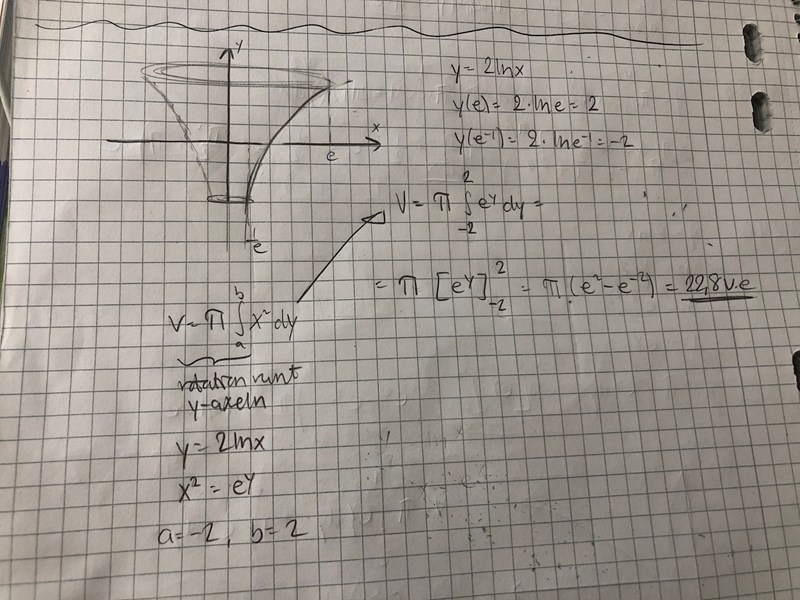 y
x
e
1/e
y = 2lnx
y(e) = 2·lne = 2
y(e⁻¹) = 2·lne⁻¹ = -2
V = π ∫₋₂² eʸ dy =
= π [eʸ]₋₂² = π(e² - e⁻²) = 22,8 v.e
V = π ∫ₐᵇ x² dy
rotation runt
y-axeln
y = 2lnx
x² = eʸ
a = -2, b = 2